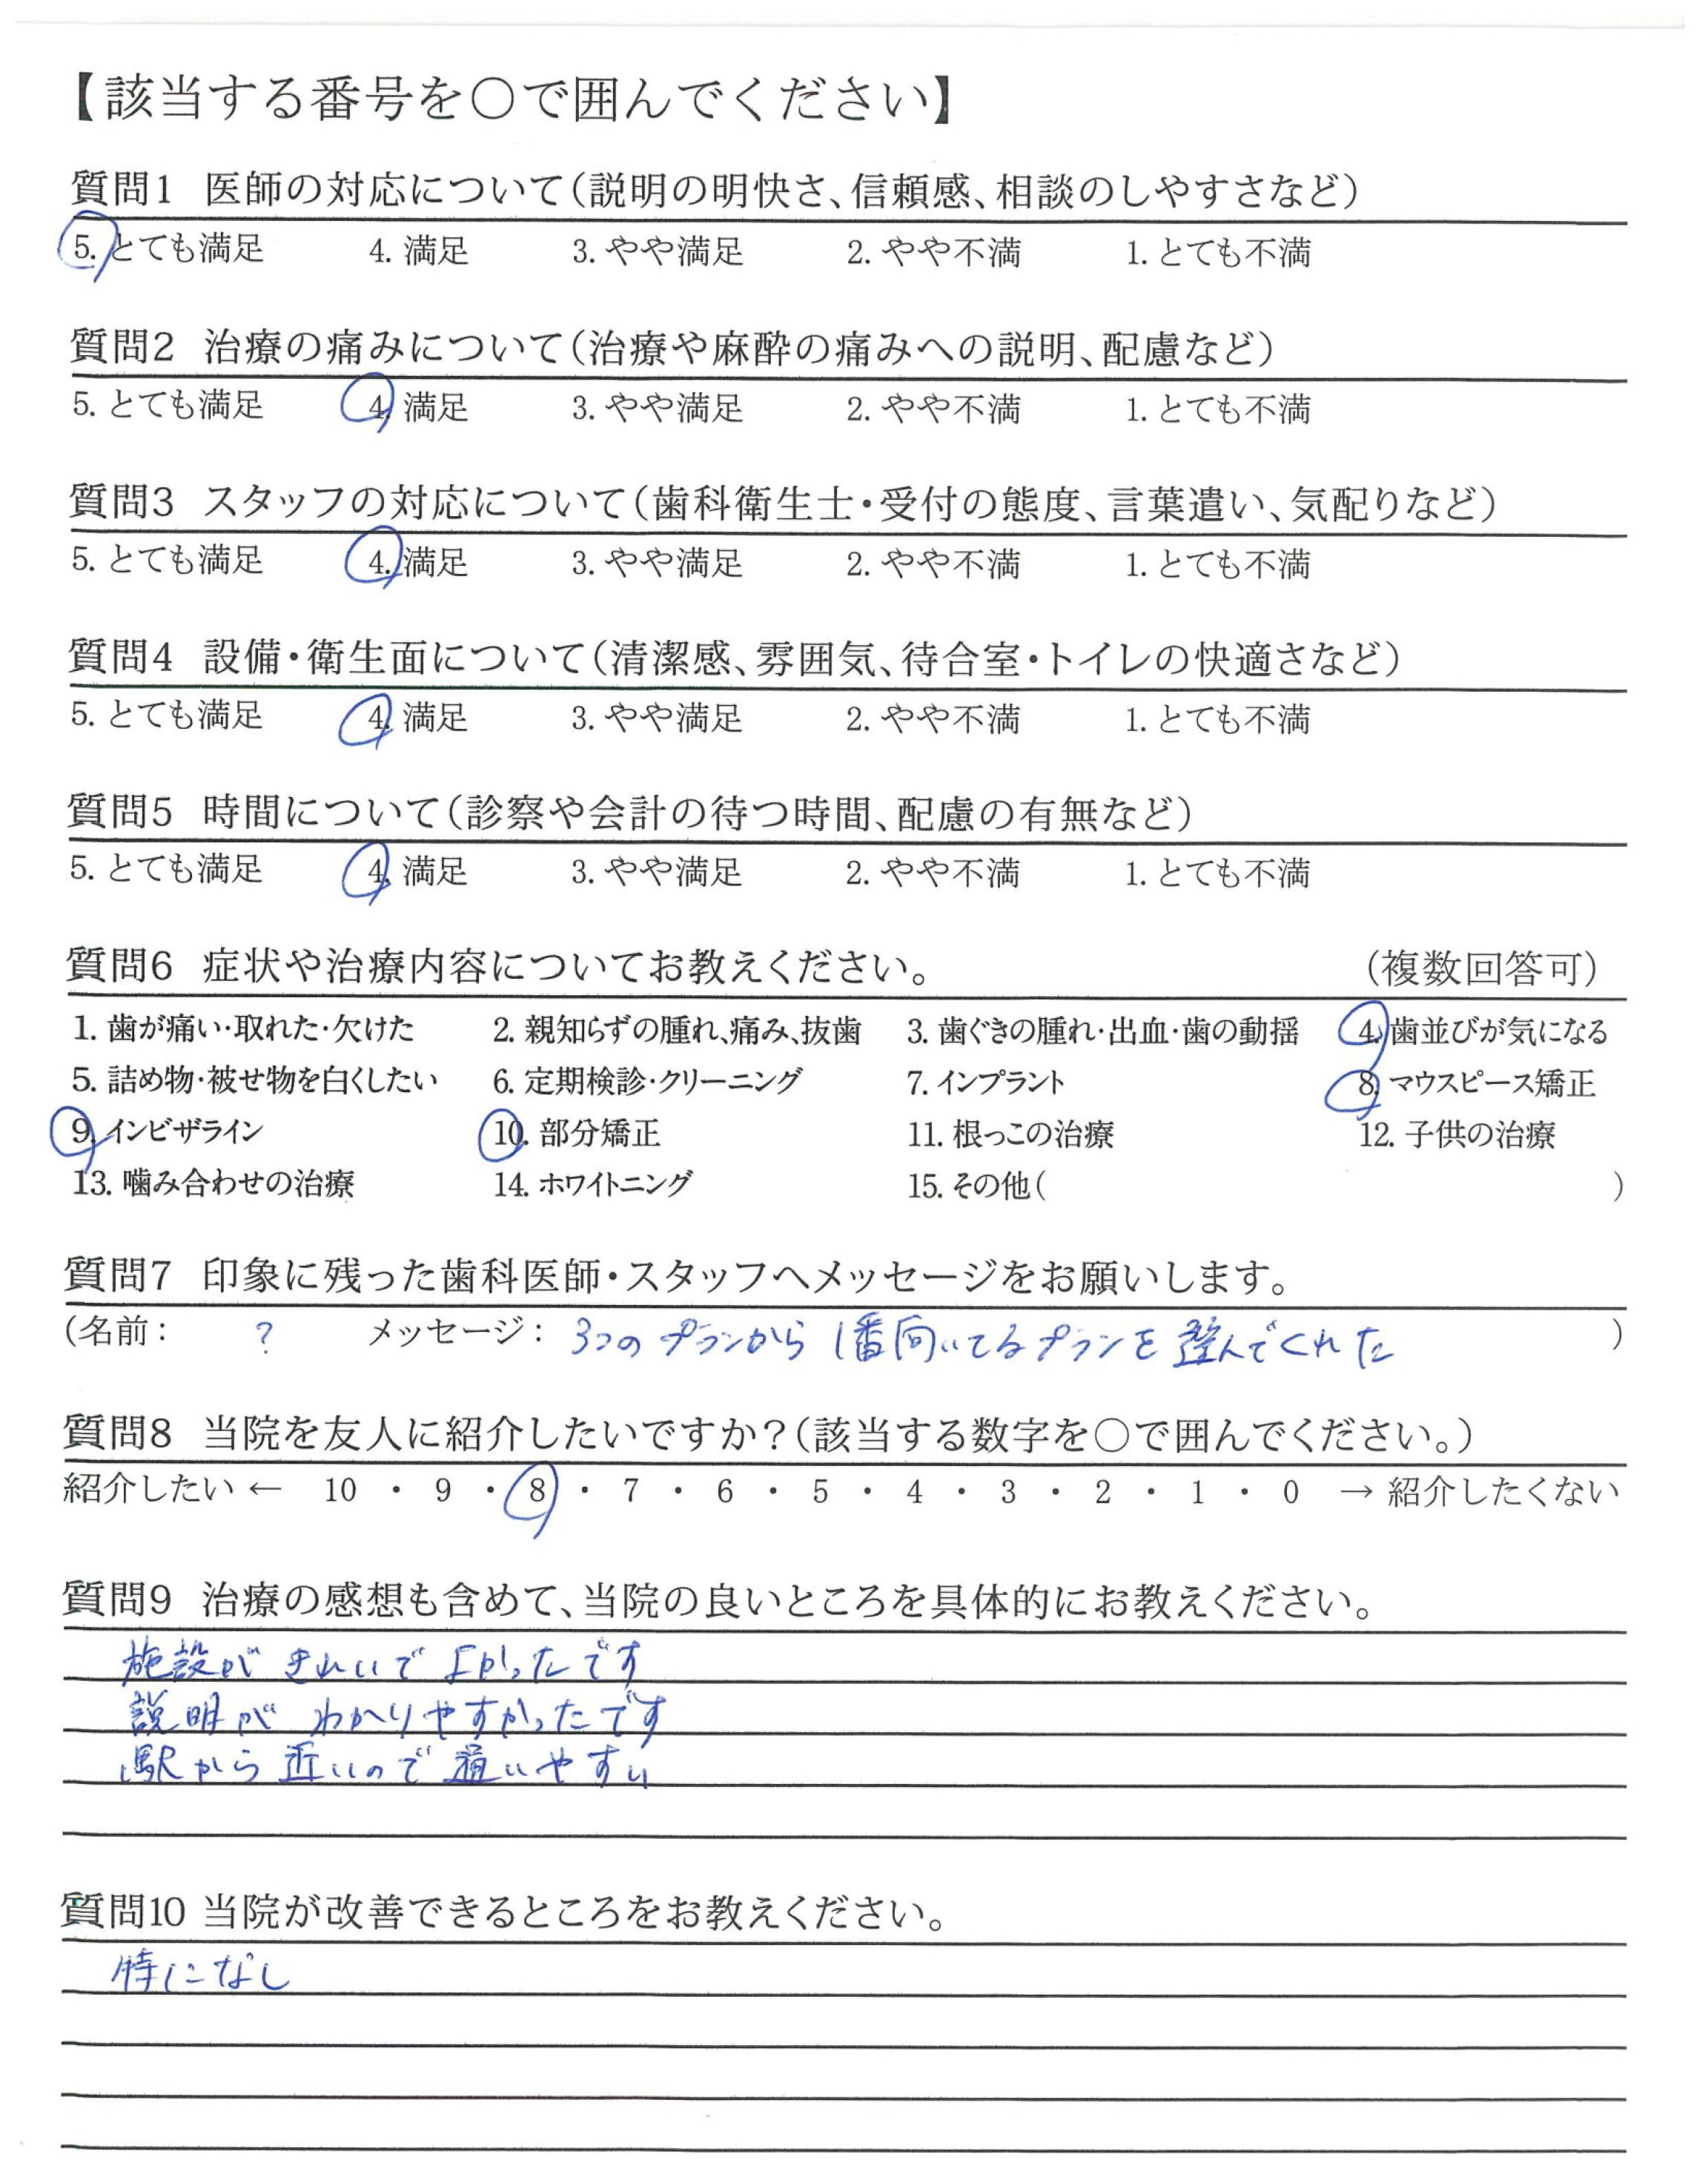 【該当する番号を○で囲んでください】
質問1 医師の対応について(説明の明快さ、信頼感、相談のしやすさなど)
5. とても満足 4. 満足 3. やや満足 2. やや不満 1. とても不満
質問2 治療の痛みについて(治療や麻酔の痛みへの説明、配慮など)
5. とても満足 4. 満足 3. やや満足 2. やや不満 1. とても不満
質問3 スタッフの対応について(歯科衛生士・受付の態度、言葉遣い、気配りなど)
5. とても満足 4. 満足 3. やや満足 2. やや不満 1. とても不満
質問4 設備・衛生面について(清潔感、雰囲気、待合室・トイレの快適さなど)
5. とても満足 4. 満足 3. やや満足 2. やや不満 1. とても不満
質問5 時間について(診察や会計の待つ時間、配慮の有無など)
5. とても満足 4. 満足 3. やや満足 2. やや不満 1. とても不満
質問6 症状や治療内容についてお教えください。 (複数回答可)
1. 歯が痛い・取れた・欠けた 2. 親知らずの腫れ、痛み、抜歯 3. 歯ぐきの腫れ・出血・歯の動揺 4. 歯並びが気になる
5. 詰め物・被せ物を白くしたい 6. 定期検診・クリーニング 7. インプラント 8. マウスピース矯正
9. インビザライン 10. 部分矯正 11. 根っこの治療 12. 子供の治療
13. 噛み合わせの治療 14. ホワイトニング 15. その他( )
質問7 印象に残った歯科医師・スタッフへメッセージをお願いします。
(名前: ? メッセージ: 3つのプランから1番向いてるプランを選んでくれた )
質問8 当院を友人に紹介したいですか?(該当する数字を○で囲んでください。)
紹介したい ← 10 ・ 9 ・ 8 ・ 7 ・ 6 ・ 5 ・ 4 ・ 3 ・ 2 ・ 1 ・ 0 → 紹介したくない
質問9 治療の感想も含めて、当院の良いところを具体的にお教えください。
施設がきれいでよかったです
説明がわかりやすかったです
駅から近いので通いやすい
質問10 当院が改善できるところをお教えください。
特になし